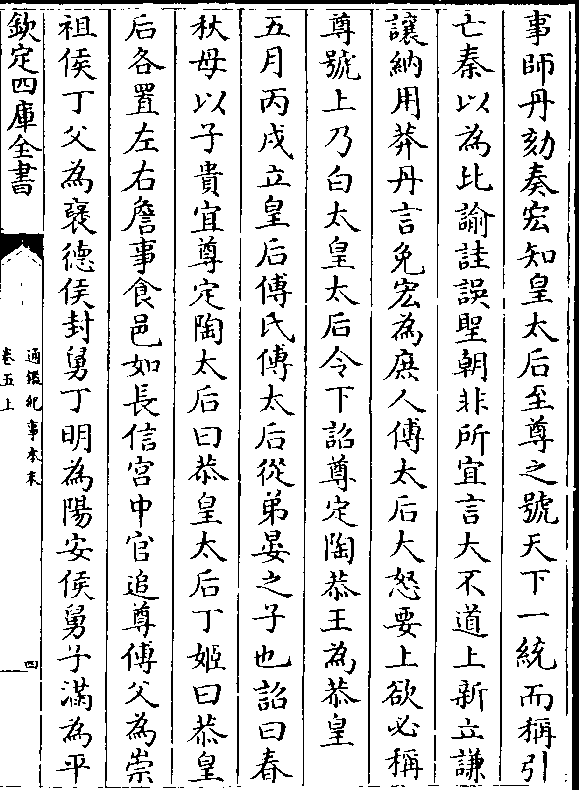 事師丹劾奏宏知皇太后至尊之號天下一統而稱引
亡秦以為比諭詿誤聖朝非所宜言大不道上新立謙
讓納用莽丹言免宏為庶人傅太后大怒要上欲必稱
尊號上乃白太皇太后令下詔尊定陶恭王為恭皇
五月丙戌立皇后傅氏傅太后從弟晏之子也詔曰春
秋母以子貴宜尊定陶太后曰恭皇太后丁姬曰恭皇
后各置左右詹事食邑如長信宮中宮追尊傅父為崇
祖侯丁父為襃德侯封舅丁明為陽安侯舅子滿為平
欽定四庫全書
通鑑紀事本末
卷五上
四